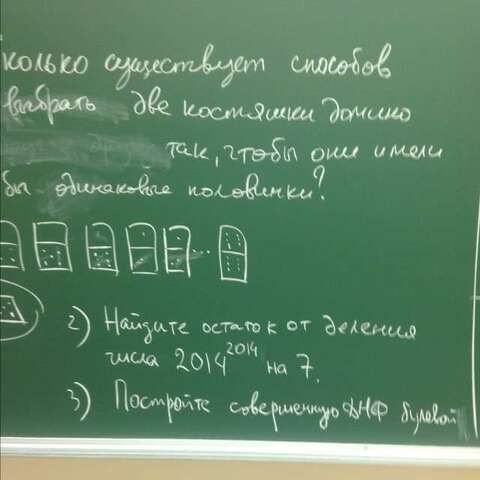 колько существует способов
выбрать две костяшки домино
так, чтобы они имели
бы одинаковые половинки?
2) Найдите остаток от деления
числа 2014^2014 на 7.
3) Постройте совершенную ДНФ булевой